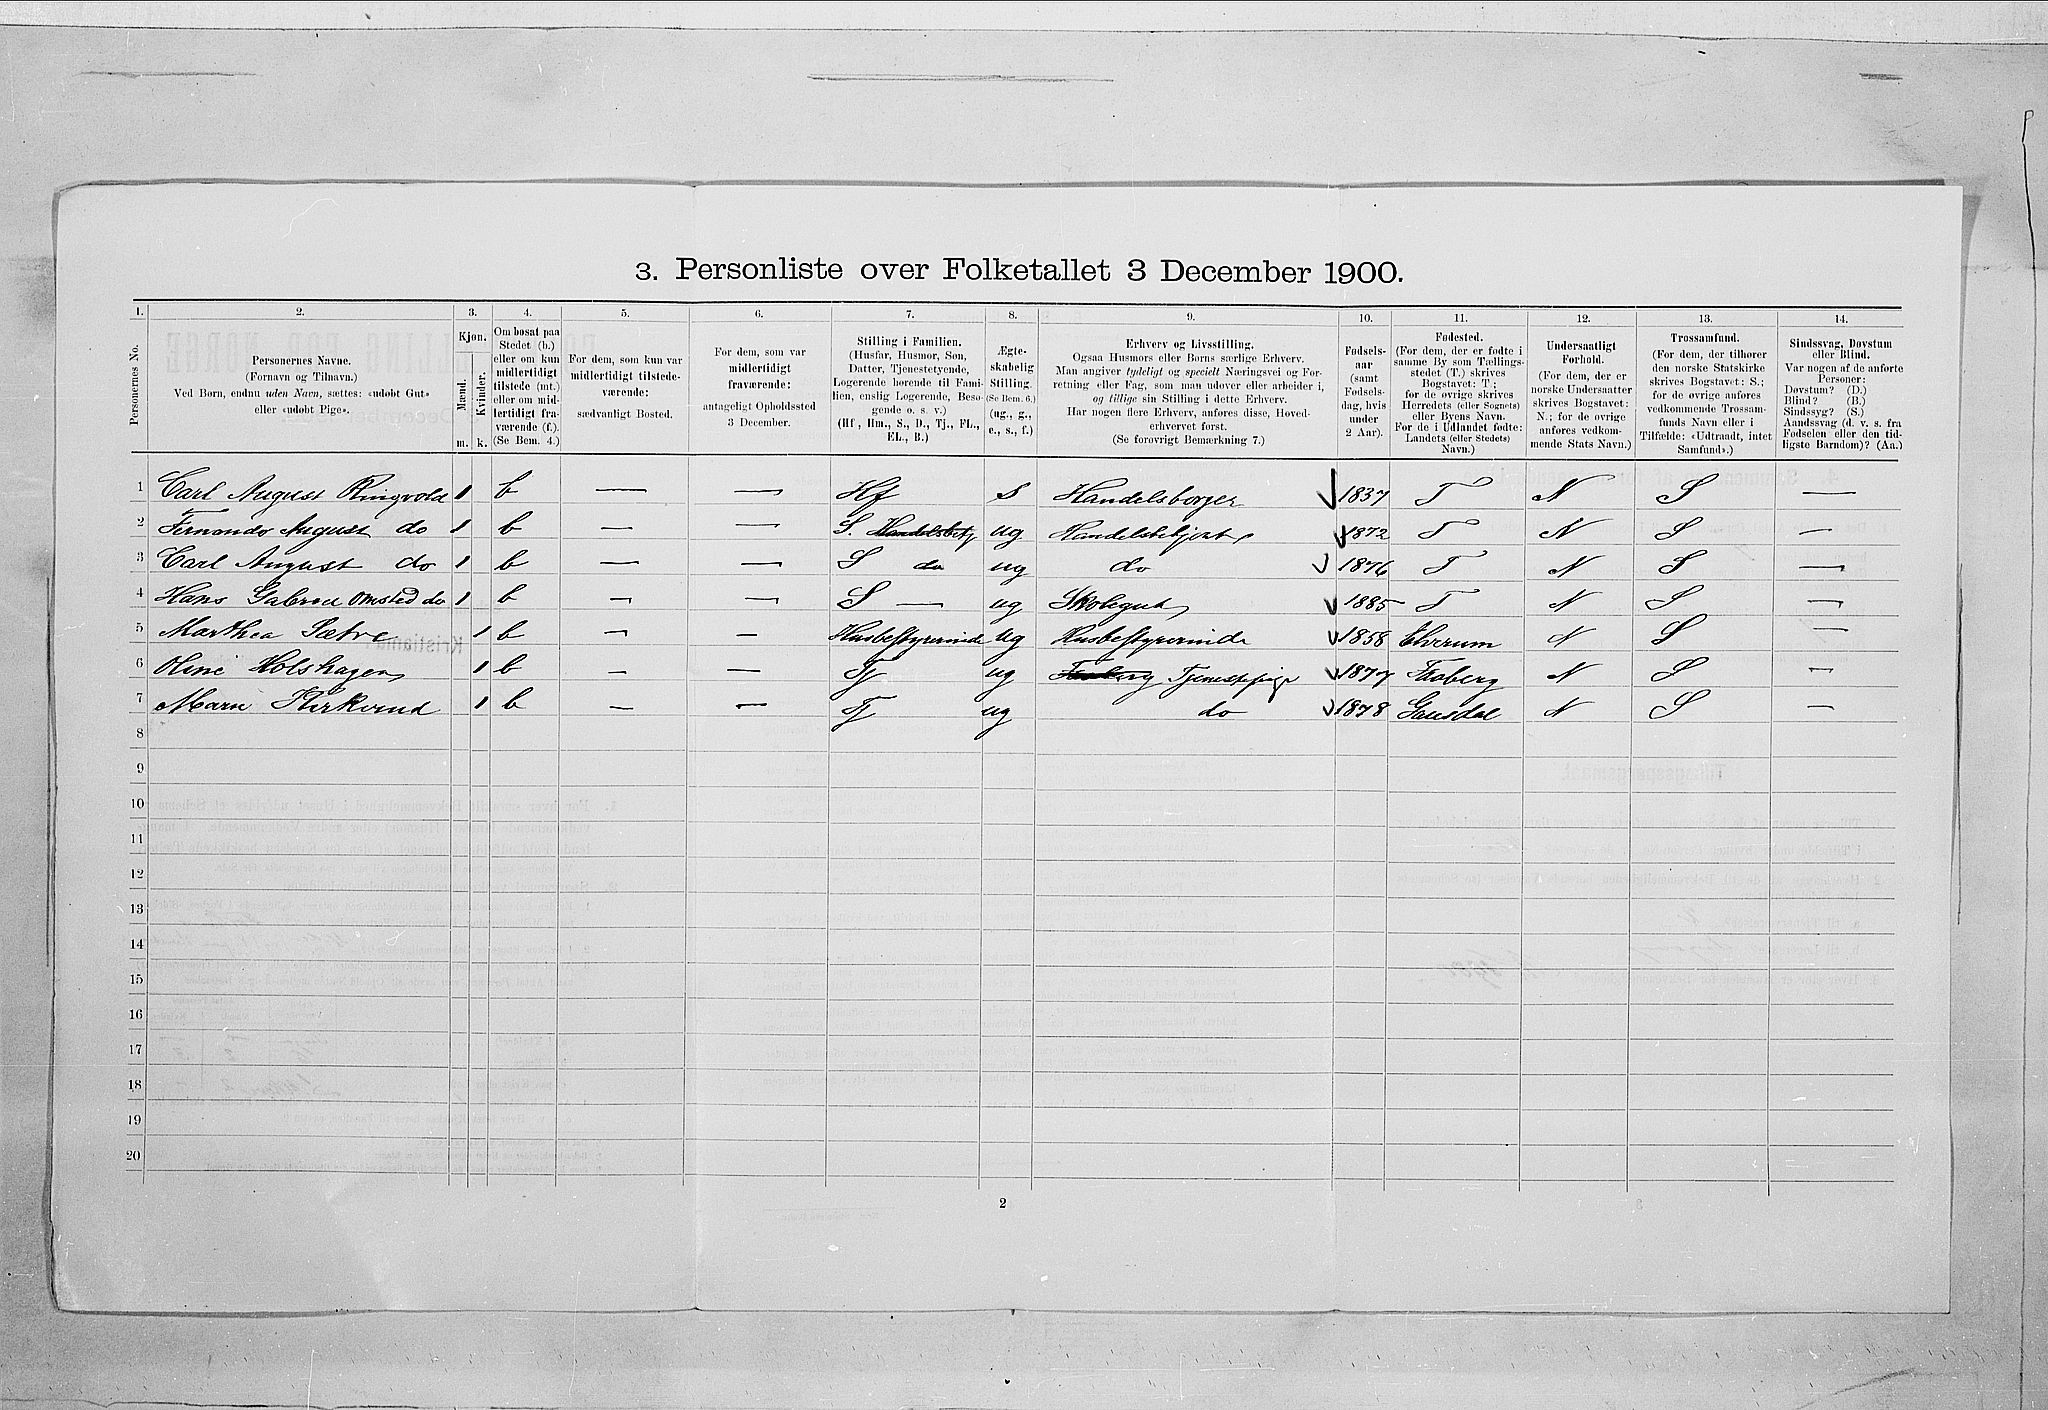 3. Personliste over Folketallet 3 December 1900.
1. 2. 3. 4. 5. 6. 7. 8. 9. 10. 11. 12. 13. 14.
Personernes No.
Personernes Navne.
(Fornavn og Tilnavn.)
Ved Børn, endnu uden Navn, sættes: «udøbt Gut»
eller «udøbt Pige».
Kjøn.
Mænd. Kvinder.
m. k.
Om bosat paa
Stedet (b.)
eller om kun
midlertidigt
tilstede (mt.)
eller om mid-
lertidigt fra-
værende (f.).
(Se Bem. 4.)
For dem, som kun var
midlertidigt tilstede-
værende:
sædvanligt Bosted.
For dem, som var
midlertidigt
fraværende:
antageligt Opholdssted
3 December.
Stilling i Familien.
(Husfar, Husmor, Søn,
Datter, Tjenestetyende,
Logerende hørende til Fami-
lien, enslig Logerende, Besø-
gende o. s. v.)
(Hf., Hm., S., D., Tj., FL.,
EL., B.)
Ægte-
skabelig
Stilling.
(Se Bem. 6.)
(ug., g.,
e., s., f.)
Erhverv og Livsstilling.
Ogsaa Husmors eller Børns særlige Erhverv.
Man angiver tydeligt og specielt Næringsvei og For-
retning eller Fag, som man udøver eller arbeider i,
og tillige sin Stilling i dette Erhverv.
Har nogen flere Erhverv, anføres disse, Hoved-
erhvervet først.
(Se forøvrigt Bemærkning 7.)
Fødsels-
aar
(samt
Fødsels-
dag, hvis
under
2 Aar).
Fødested.
(For dem, der er fødte i
samme By som Tællings-
stedet (T.) skrives
Bogstavet: T.;
for de øvrige skrives
Herredets (eller Sognets)
eller Byens Navn.
For de i Udlandet fødte:
Landets (eller Stedets)
Navn.)
Undersaatligt
Forhold.
(For dem, der er
norske Undersaatter
skrives Bogstavet:
N.; for de øvrige
anføres vedkom-
mende Stats Navn.)
Trossamfund.
(For dem, der tilhører
den norske Statskirke
skrives Bogstavet: S.;
for de øvrige anføres
vedkommende Trossam-
funds Navn eller i
Tilfælde: «Udtraadt, intet
Samfund».)
Sindssvag, Døvstum
eller Blind.
Var nogen af de anførte
Personer:
Døvstum? (D.)
Blind? (B.)
Sindssyg? (S.)
Aandssvag (d. v. s. fra
Fødselen eller den tid-
ligste Barndom)? (Aa.)
1 Carl August Ringvold 1 b — — Hf S Handelsborger 1837 T N S —
2 Fernando August do 1 b — — S. Handelsbetj ug Handelsbetjent 1872 T N S —
3 Carl August do 1 b — — S do ug do 1876 T N S —
4 Hans Gabriel Omsted do 1 b — — S — ug Skolegut 1885 T N S —
5 Marthea Sætre 1 b — — Husbestyrerinde ug Husbestyrerinde 1858 Elverum N S —
6 Oline Holshagen 1 b — — Tj ug Tjenestpige 1877 Faaberg N S —
7 Marie Kirkerud 1 b — — Tj ug do 1878 Gausdal N S —
8
9
10
11
12
13
14
15
16
17
18
19
20
2